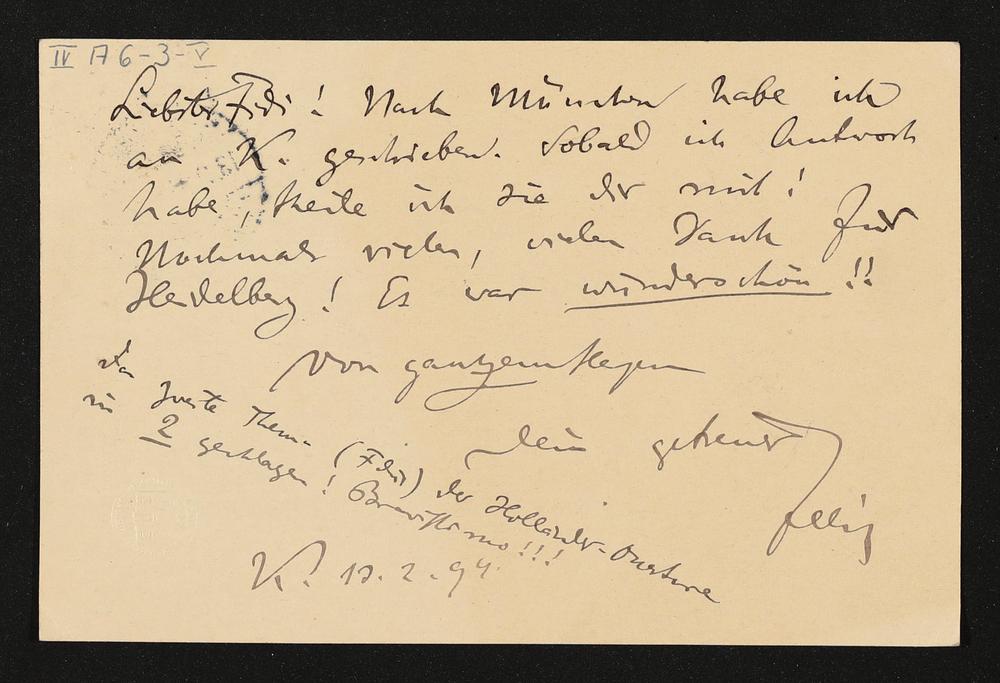 IV A 6-3-V
Liebster Fidi! Nach München habe ich
an K. geschrieben. Sobald ich Antwort
habe, theile ich sie dir mit!
Nochmals vielen, vielen Dank für
Heidelberg! Es war wunderschön!!
Von ganzem Herzen
Dein getreuer
Felix
Das zweite Thema (Fdur) der Holländer-Ouverture
in 2 geschlagen! Bravissimo!!!
K. 13.2.94.